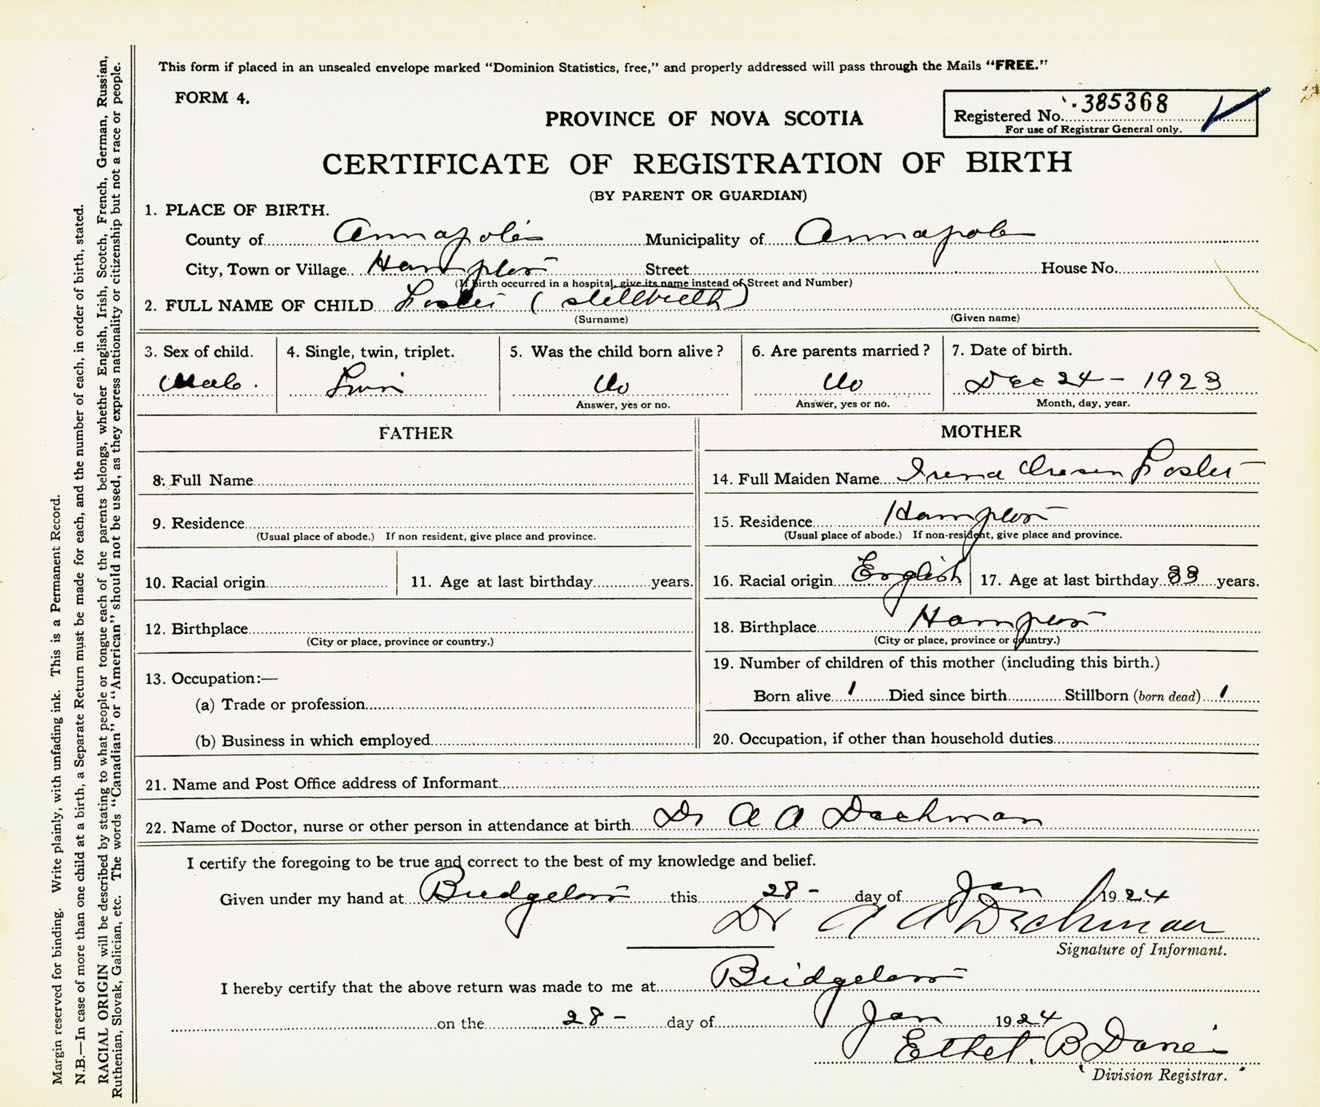 This form if placed in an unsealed envelope marked "Dominion Statistics, free," and properly addressed will pass through the Mails "FREE."
FORM 4.
PROVINCE OF NOVA SCOTIA
Registered No. 385368
For use of Registrar General only.
CERTIFICATE OF REGISTRATION OF BIRTH
(BY PARENT OR GUARDIAN)
1. PLACE OF BIRTH.
County of Annapolis Municipality of Annapolis
City, Town or Village Hampton Street House No.
(If birth occurred in a hospital, give its name instead of Street and Number)
2. FULL NAME OF CHILD Foster (stillbirth)
(Surname) (Given name)
3. Sex of child. 4. Single, twin, triplet. 5. Was the child born alive? 6. Are parents married? 7. Date of birth.
Male. Twin No No Dec 24 - 1923
Answer, yes or no. Answer, yes or no. Month, day, year.
FATHER MOTHER
8. Full Name 14. Full Maiden Name Foster
9. Residence 15. Residence Hampton
(Usual place of abode.) If non resident, give place and province. (Usual place of abode.) If non-resident, give place and province.
10. Racial origin 11. Age at last birthday years. 16. Racial origin English 17. Age at last birthday 33 years.
12. Birthplace 18. Birthplace Hampton
(City or place, province or country.) (City or place, province or country.)
19. Number of children of this mother (including this birth.)
13. Occupation:—
Born alive 1 Died since birth Stillborn (born dead) 1
(a) Trade or profession
(b) Business in which employed 20. Occupation, if other than household duties
21. Name and Post Office address of Informant
22. Name of Doctor, nurse or other person in attendance at birth Dr A A Dechman
I certify the foregoing to be true and correct to the best of my knowledge and belief.
Given under my hand at Bridgetown this 28 - day of Jan 1924
Dr A A Dechman
Signature of Informant.
I hereby certify that the above return was made to me at Bridgetown
on the 28 - day of Jan 1924
Ethel B
Division Registrar.
Margin reserved for binding. Write plainly, with unfading ink. This is a Permanent Record.
N.B.—In case of more than one child at a birth, a Separate Return must be made for each, and the number of each, in order of birth, stated.
RACIAL ORIGIN will be described by stating to what people or tongue each of the parents belongs, whether English, Irish, Scotch, French, German, Russian,
Ruthenian, Slovak, Galician, etc. The words "Canadian" or "American" should not be used, as they express nationality or citizenship but not a race or people.